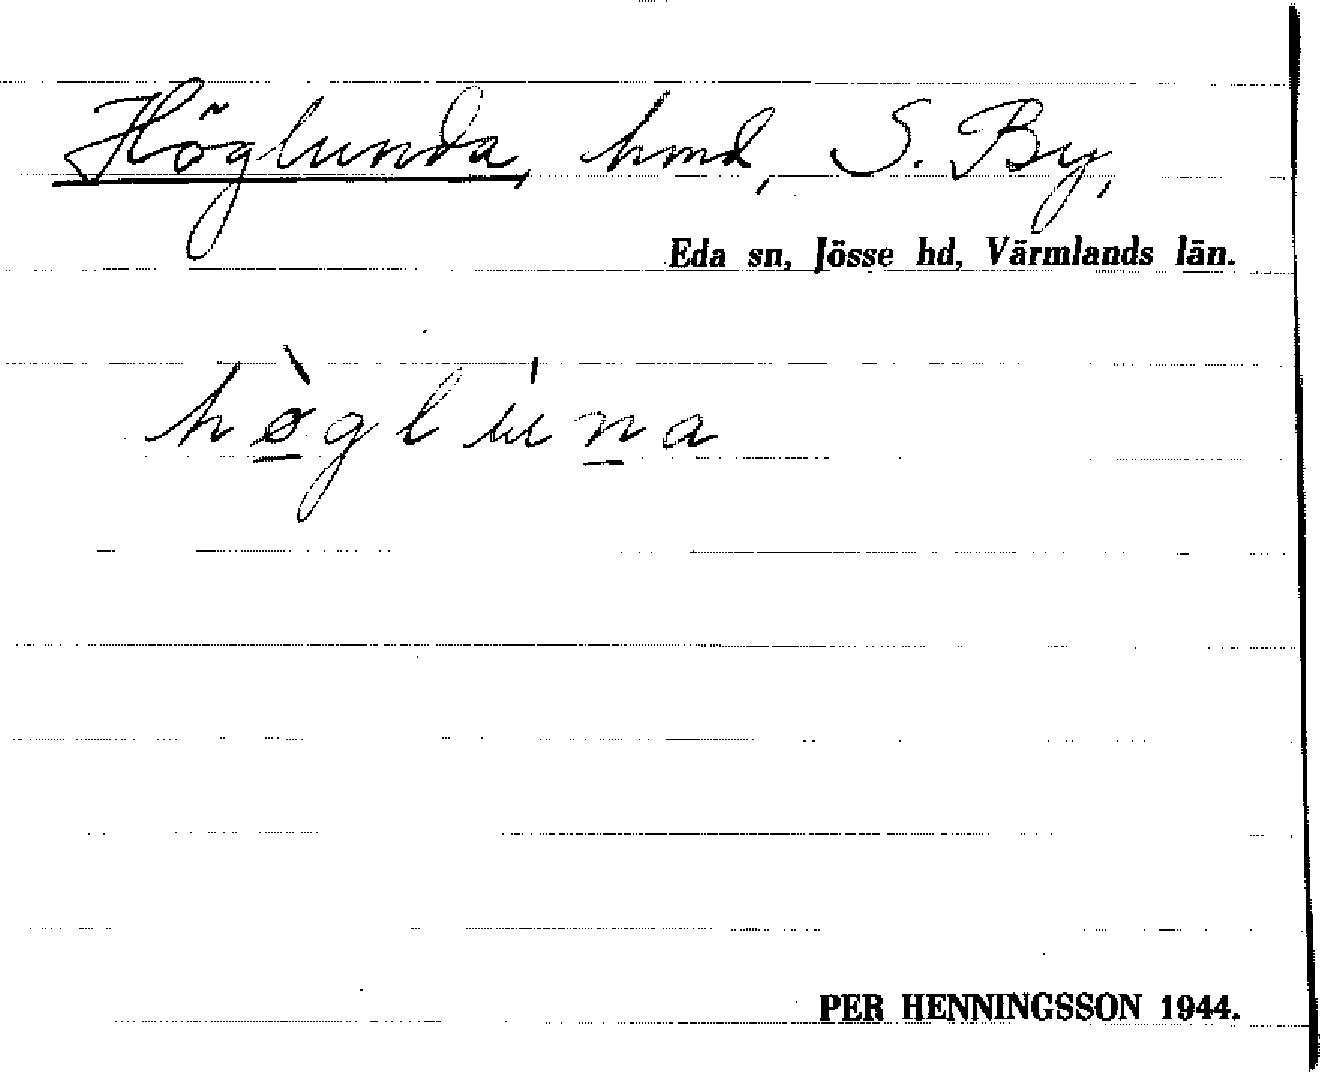 Höglunda, hmd, S. By,
Eda sn, Jösse hd, Värmlands län.
hø̀glúna
PER HENNINGSSON 1944.